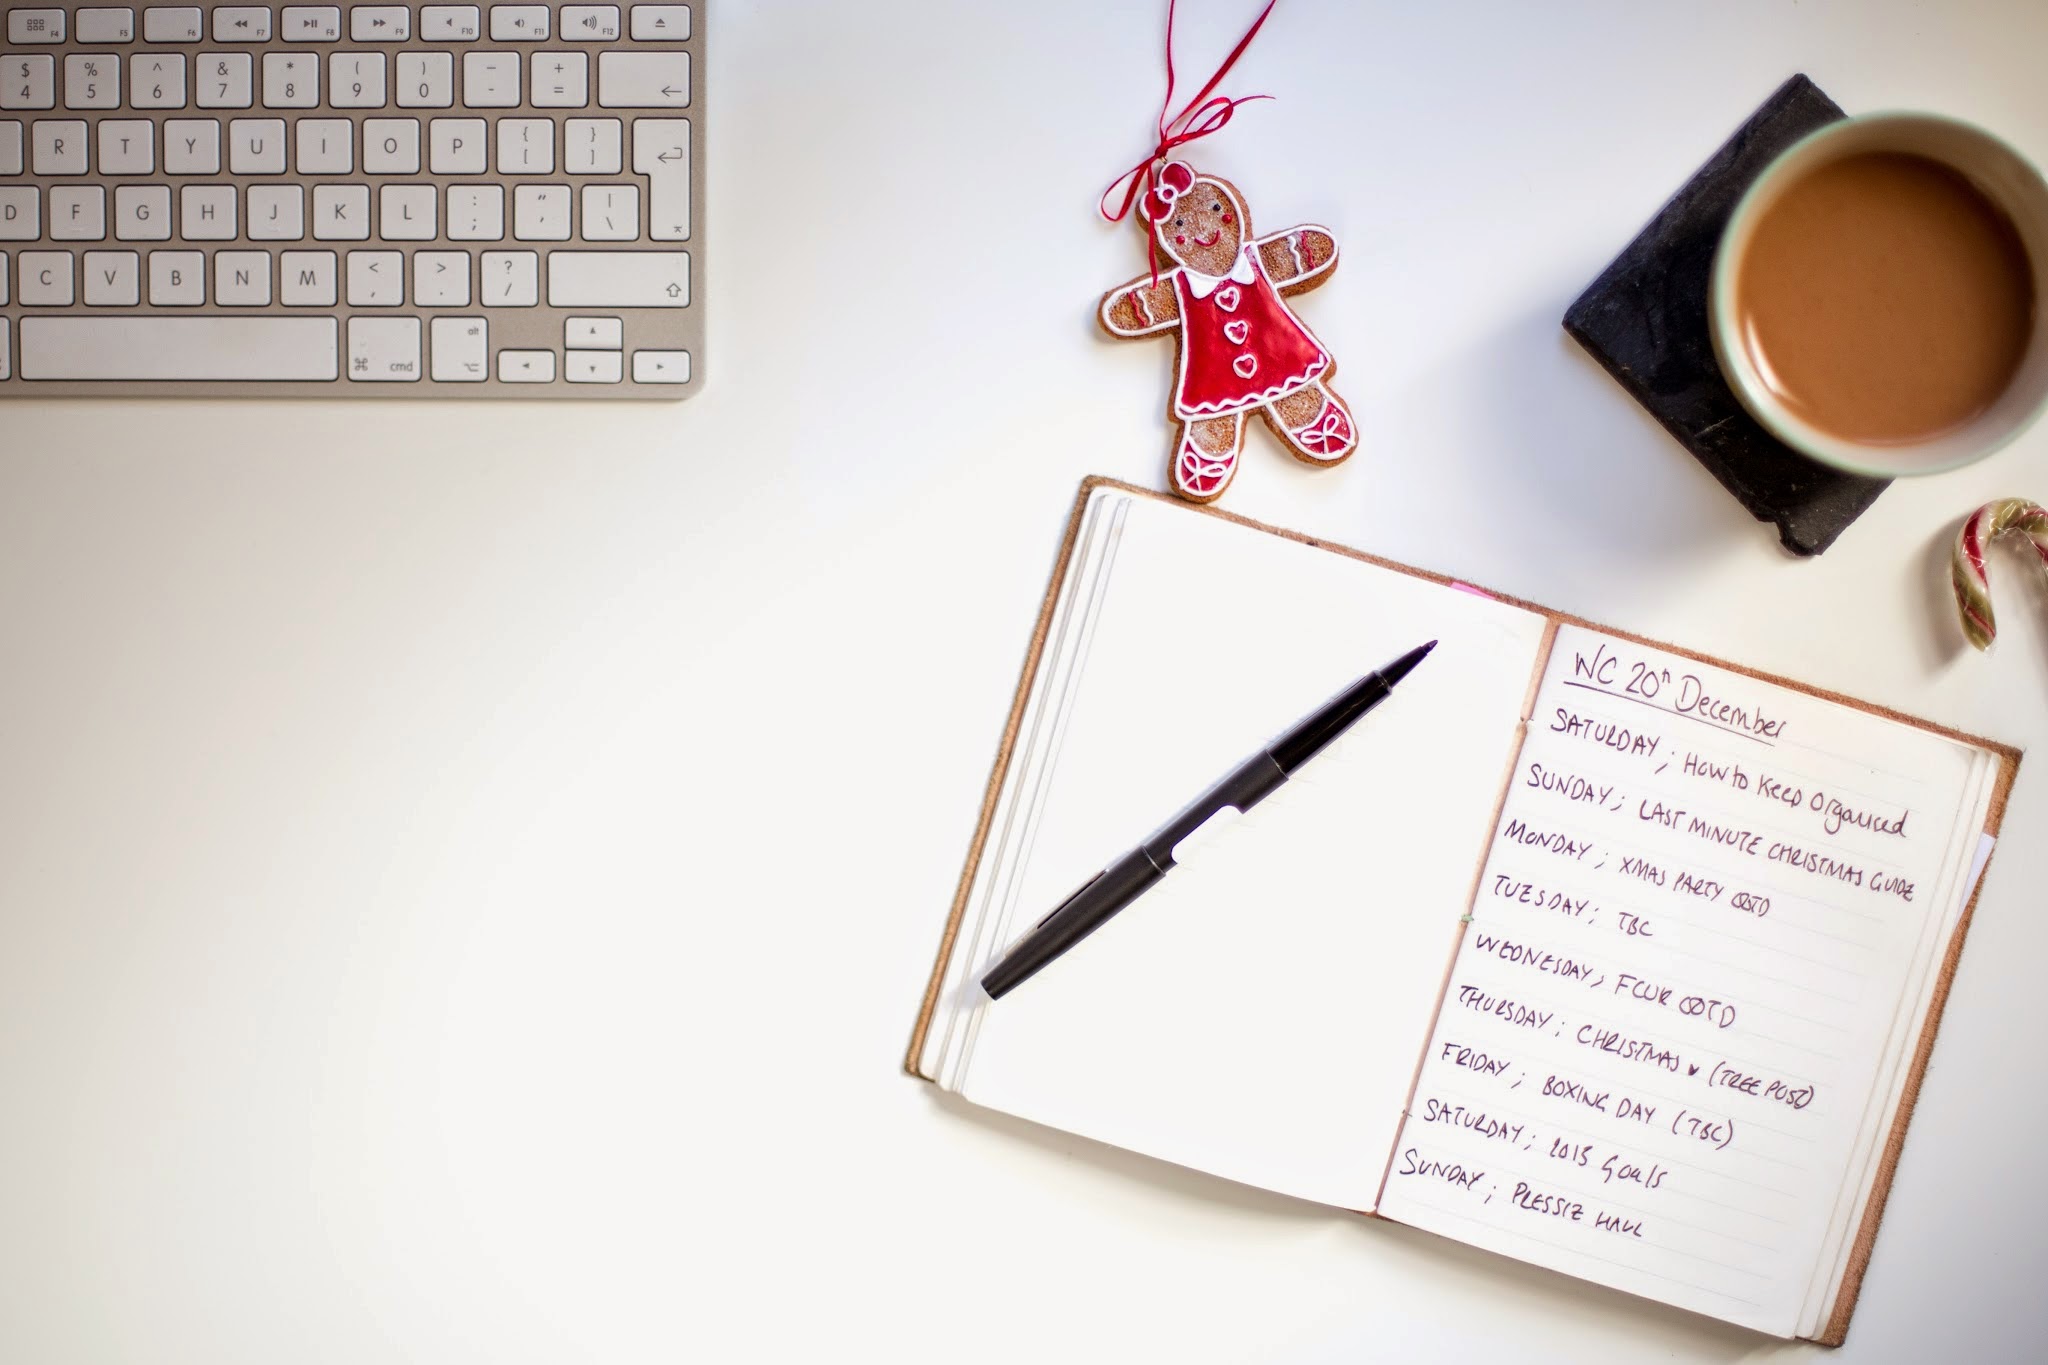 F4 F5 F6 F7 F8 F9 F10 F11 F12
$ % ^ & * ( ) _ +
4 5 6 7 8 9 0 - =
R T Y U I O P { [ } ]
D F G H J K L : ; " ' | \
C V B N M < , > . ? /
alt
cmd
WC 20th December
SATURDAY ; How to Keep Organised
SUNDAY ; LAST MINUTE CHRISTMAS GUIDE
MONDAY ; XMAS PARTY OOTD
TUESDAY ; TBC
WEDNESDAY ; OOTD
THURSDAY ; CHRISTMAS ♥ (TREE POST)
FRIDAY ; BOXING DAY (TBC)
SATURDAY ; 2015 Goals
SUNDAY ; HAUL